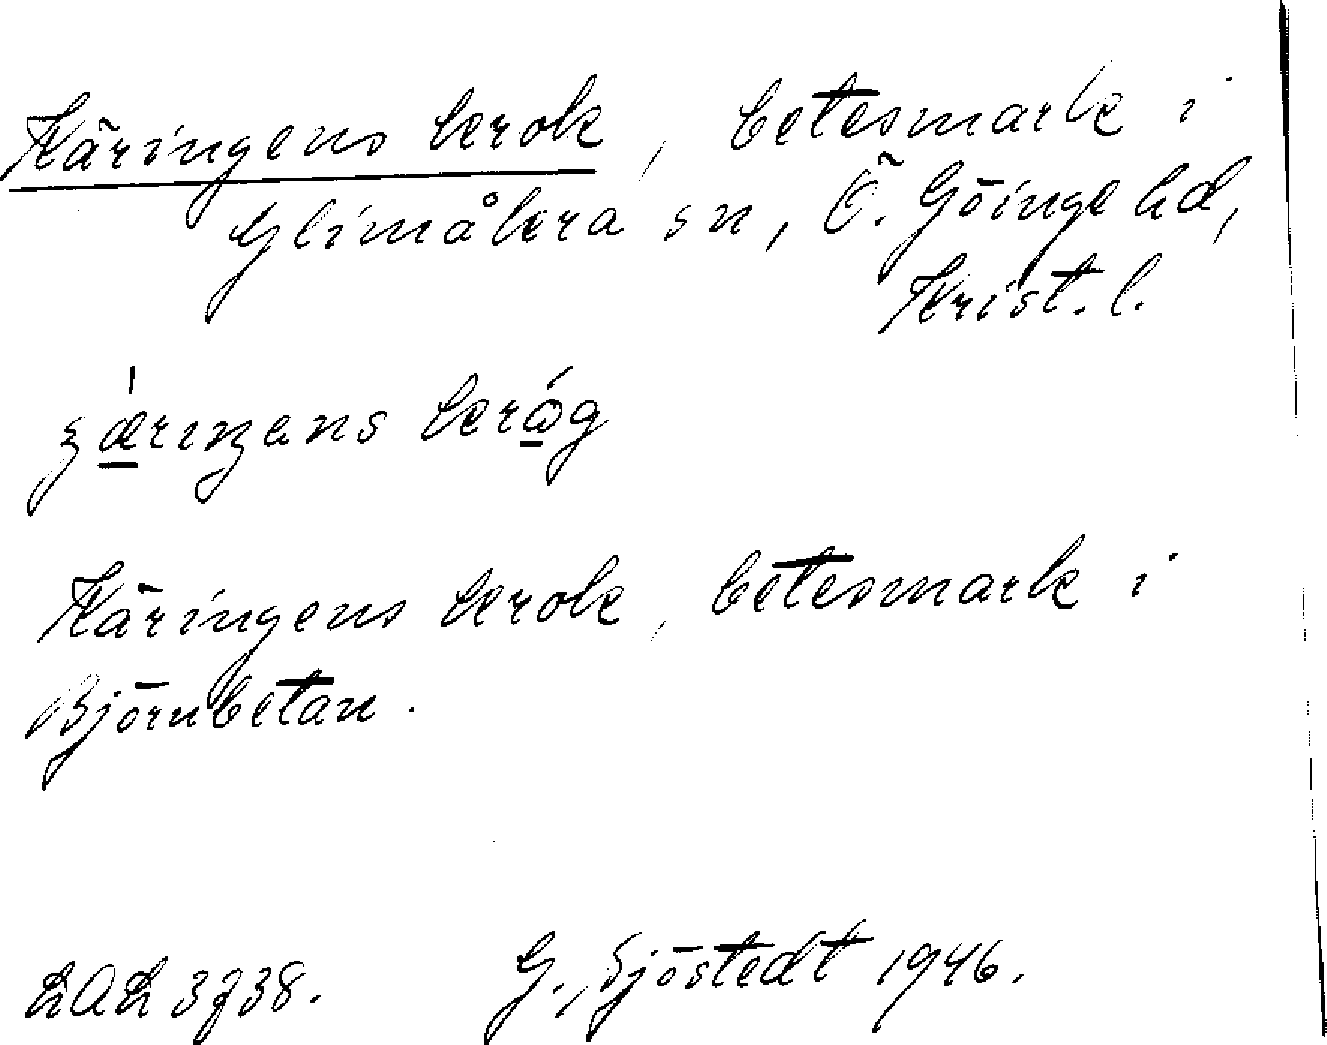 Käringens krok, betesmark i
Glimåkra sn, Ö. Göinge hd,
Krist. l.
Käringens krok, betesmark i
Björnbetan.
G. Sjöstedt 1946.